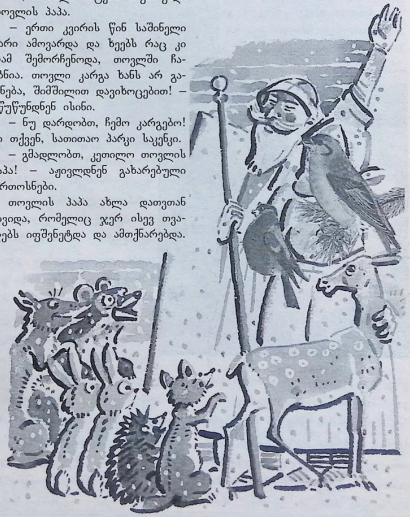 თოვლის პაპა.
– ერთი კვირის წინ საშინელი
არი ამოვარდა და ხეებს რაც კი
ამ შემორჩენოდა, თოვლში ჩა-
ნია. თოვლი კარგა ხანს არ გა-
ნება, შიმშილით დავიხოცებით! –
წუწუნდნენ ისინი.
– ნუ დარდობთ, ჩემო კარგებო!
ი თქვენ, სათითაო პარკი საკენკი.
– გმადლობთ, კეთილო თოვლის
აპა! – აჟივლდნენ გახარებული
რთოსნები.
თოვლის პაპა ახლა დათვთან
ვიდა, რომელიც ჯერ ისევ თვა-
ებს იფშვნეტდა და ამთქნარებდა.